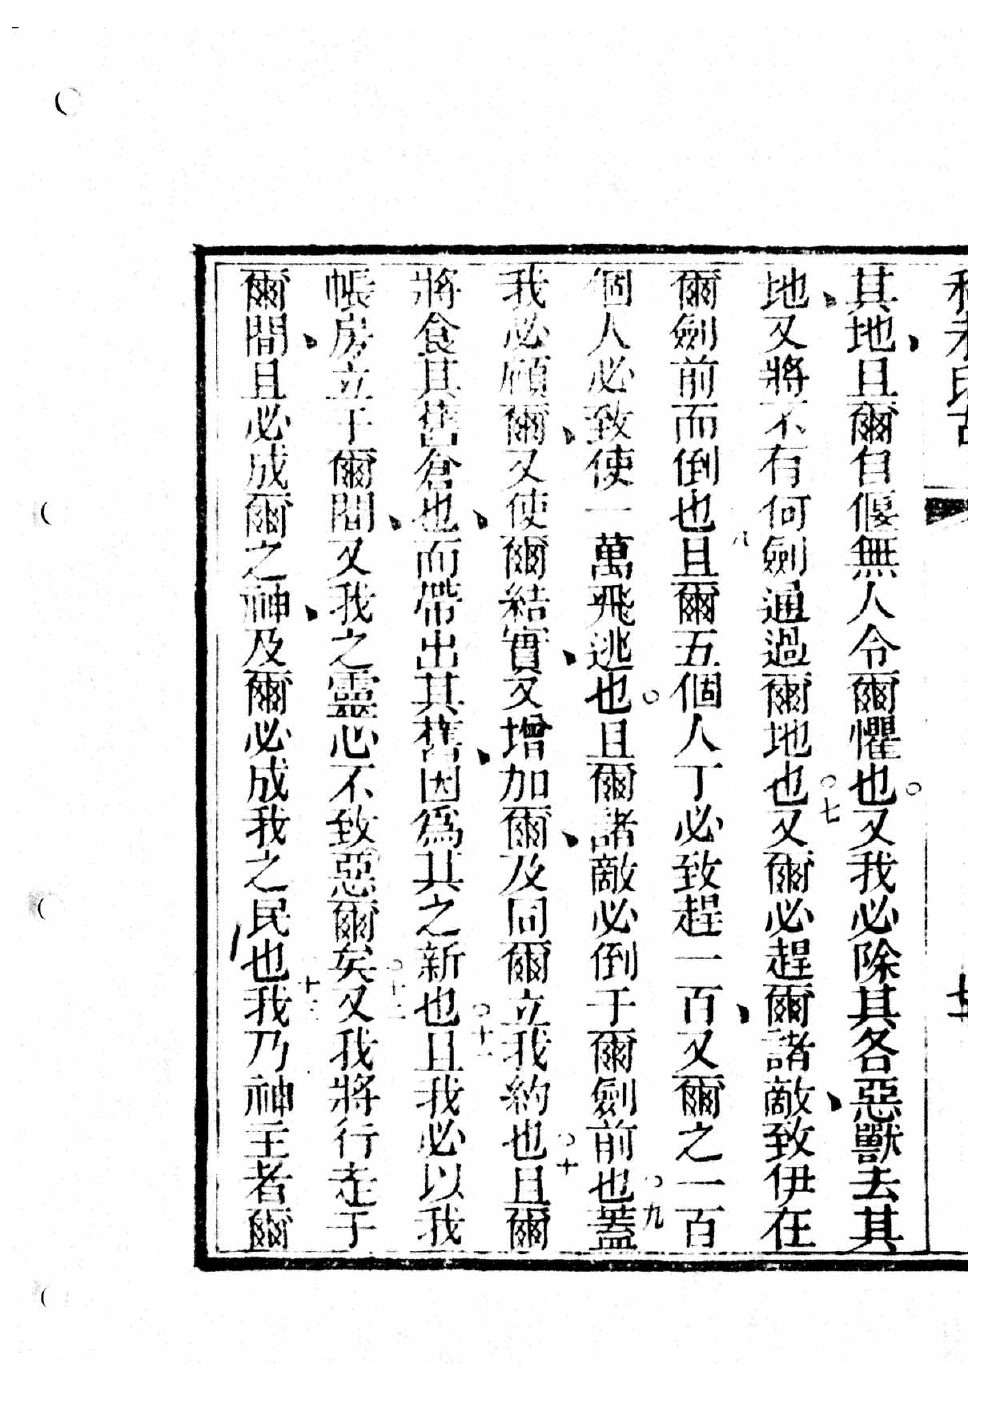 其地、且爾自偃無人令爾懼也。又我必除其各惡獸去其
地、又將不有何劍通過爾地也。七又爾必趕爾諸敵、致伊在
爾劍前而倒也八且爾五個人丁必致趕一百、又爾之一百
個人必致使一萬飛逃也。且爾諸敵必倒于爾劍前也。九蓋
我必顧爾、又使爾結實、又增加爾、及同爾立我約也。十且爾
將食其舊倉也、而帶出其舊、因爲其之新也。十一且我必以我
帳房立于爾間、又我之靈心不致惡爾矣。十二又我將行走于
爾間、且必成爾之神、及爾必成我之民也十三我乃神主者爾